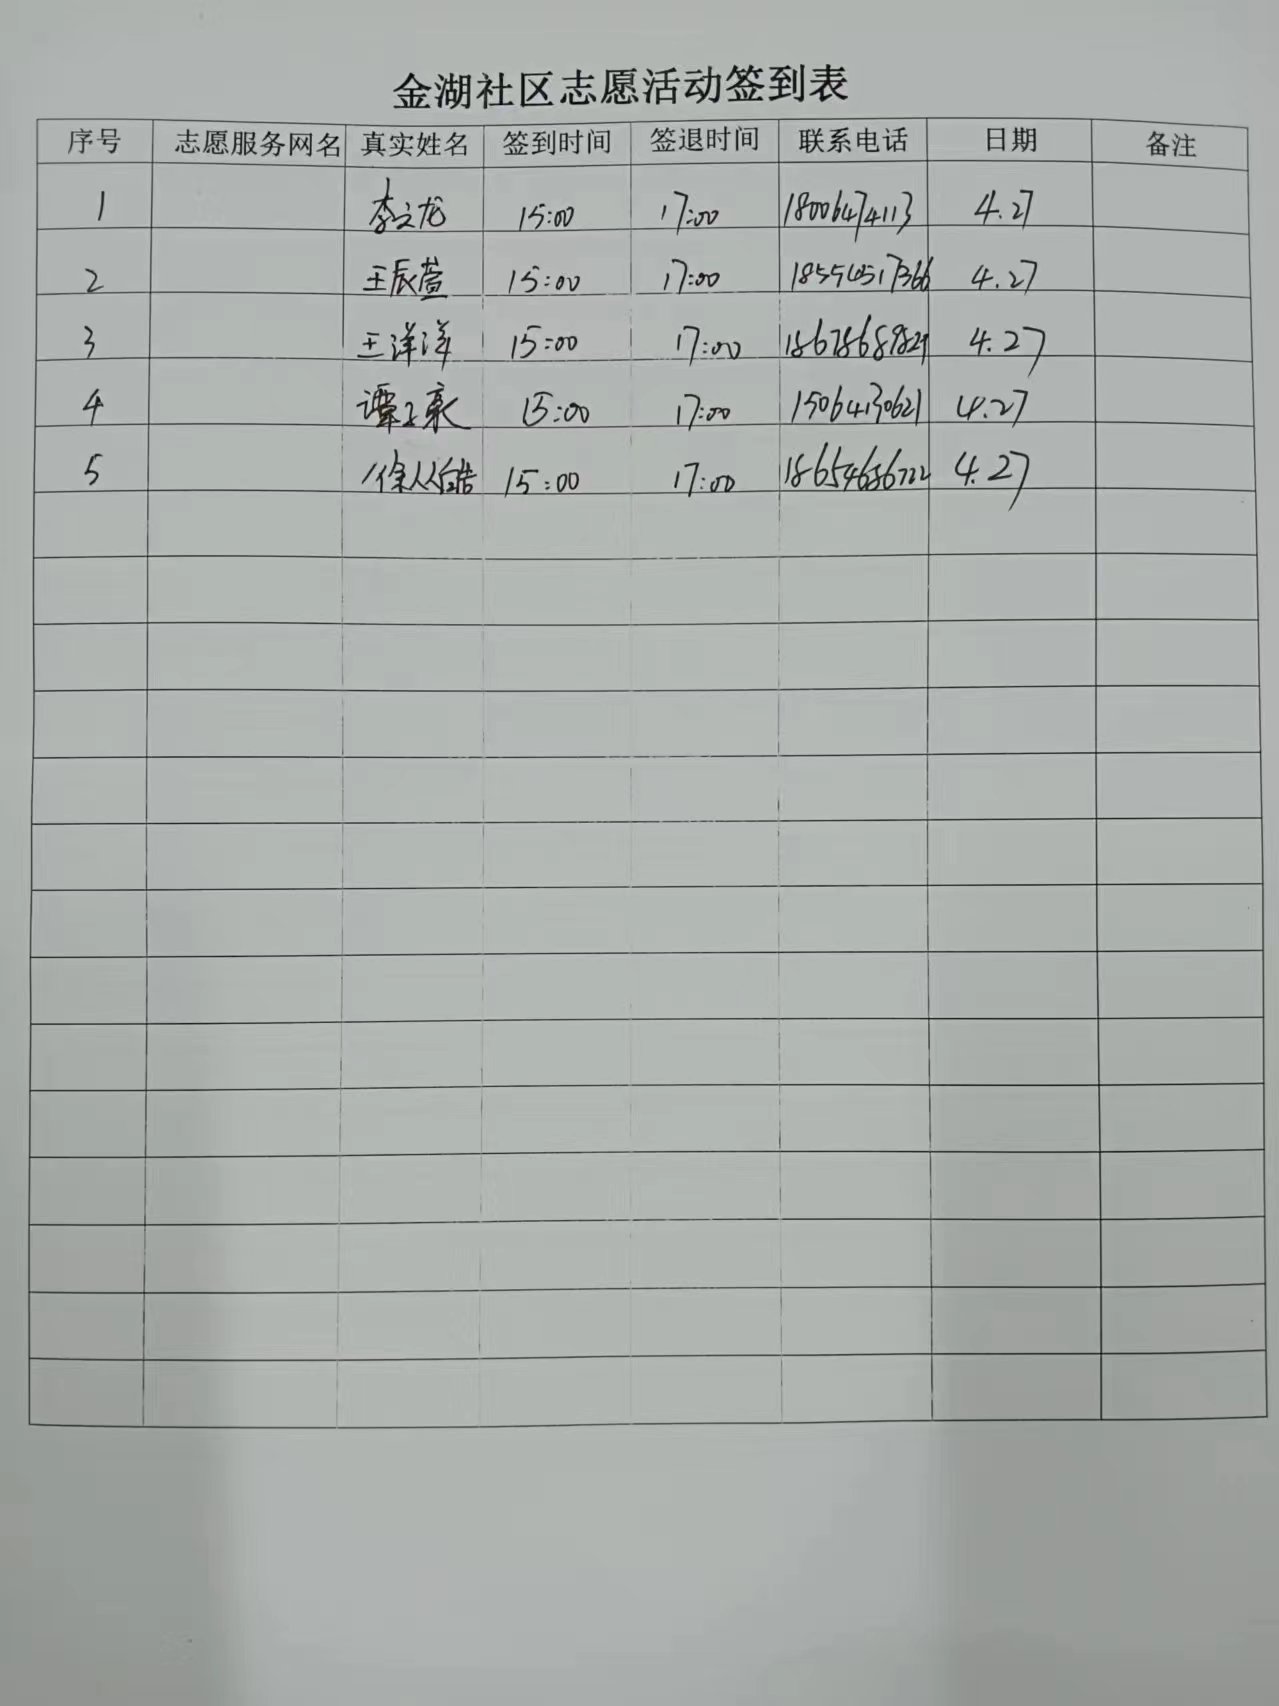 金湖社区志愿活动签到表
序号 志愿服务网名 真实姓名 签到时间 签退时间 联系电话 日期 备注
1 李文龙 15:00 17:00 18006474113 4.27
2 王辰萱 15:00 17:00 4.27
3 王洋洋 15:00 17:00 18678689829 4.27
4 谭 豪 15:00 17:00 15064130621 4.27
5 徐 皓 15:00 17:00 18654686722 4.27